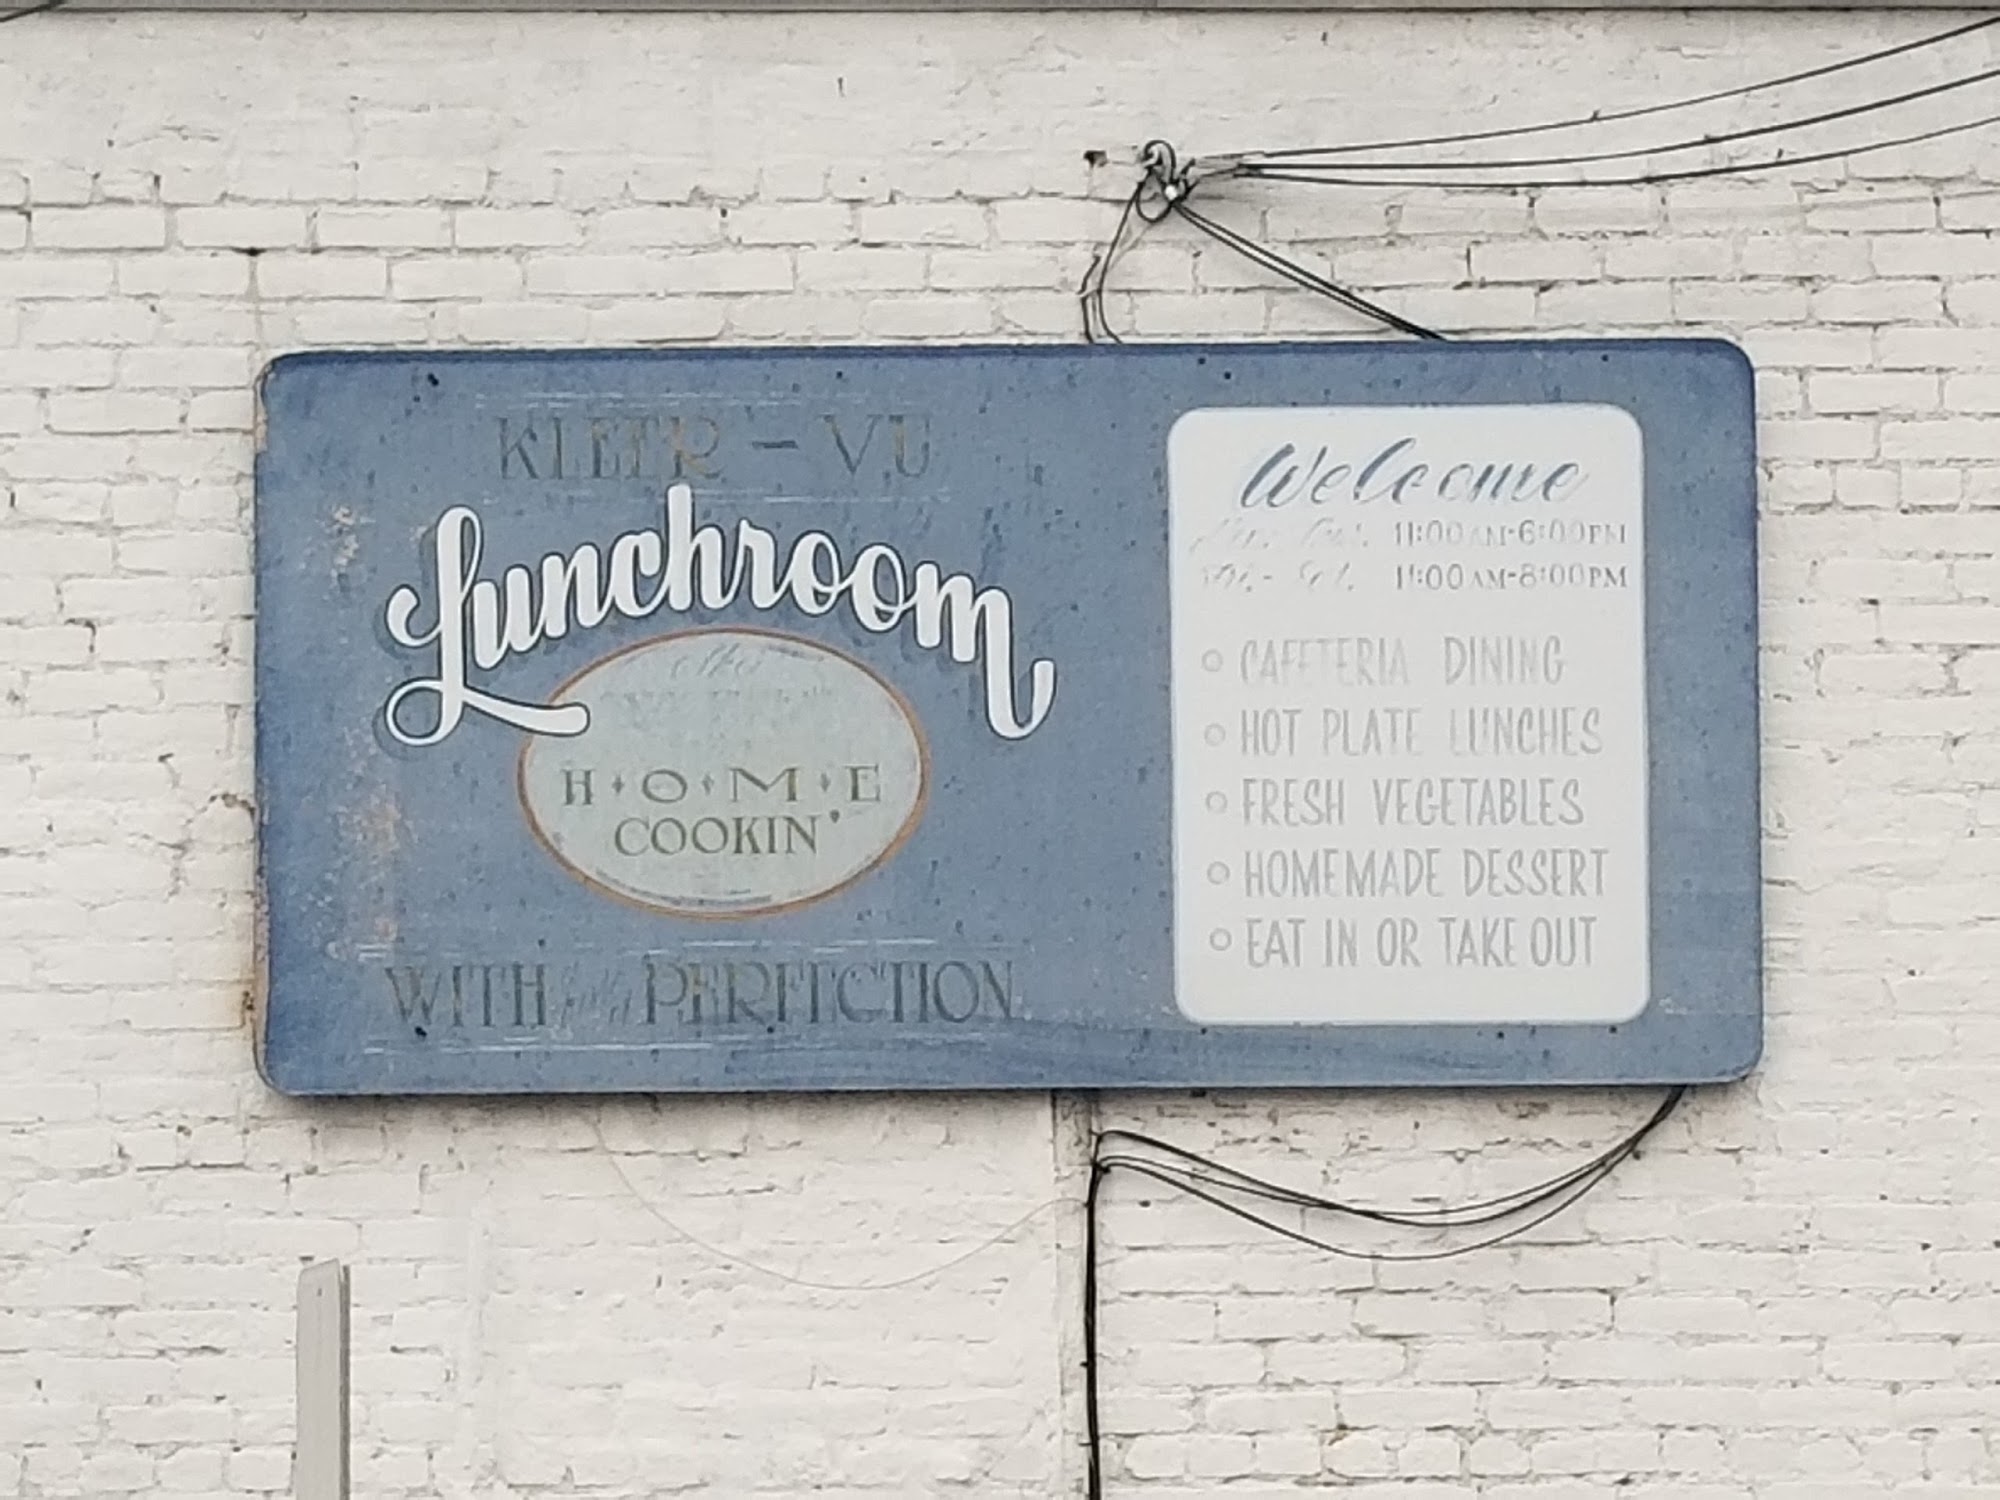 KLEER-VU
Lunchroom
H·O·M·E
COOKIN'
WITH PERFECTION
Welcome
11:00AM-6:00PM
Fri.- Sat. 11:00AM-8:00PM
CAFETERIA DINING
HOT PLATE LUNCHES
FRESH VEGETABLES
HOMEMADE DESSERT
EAT IN OR TAKE OUT